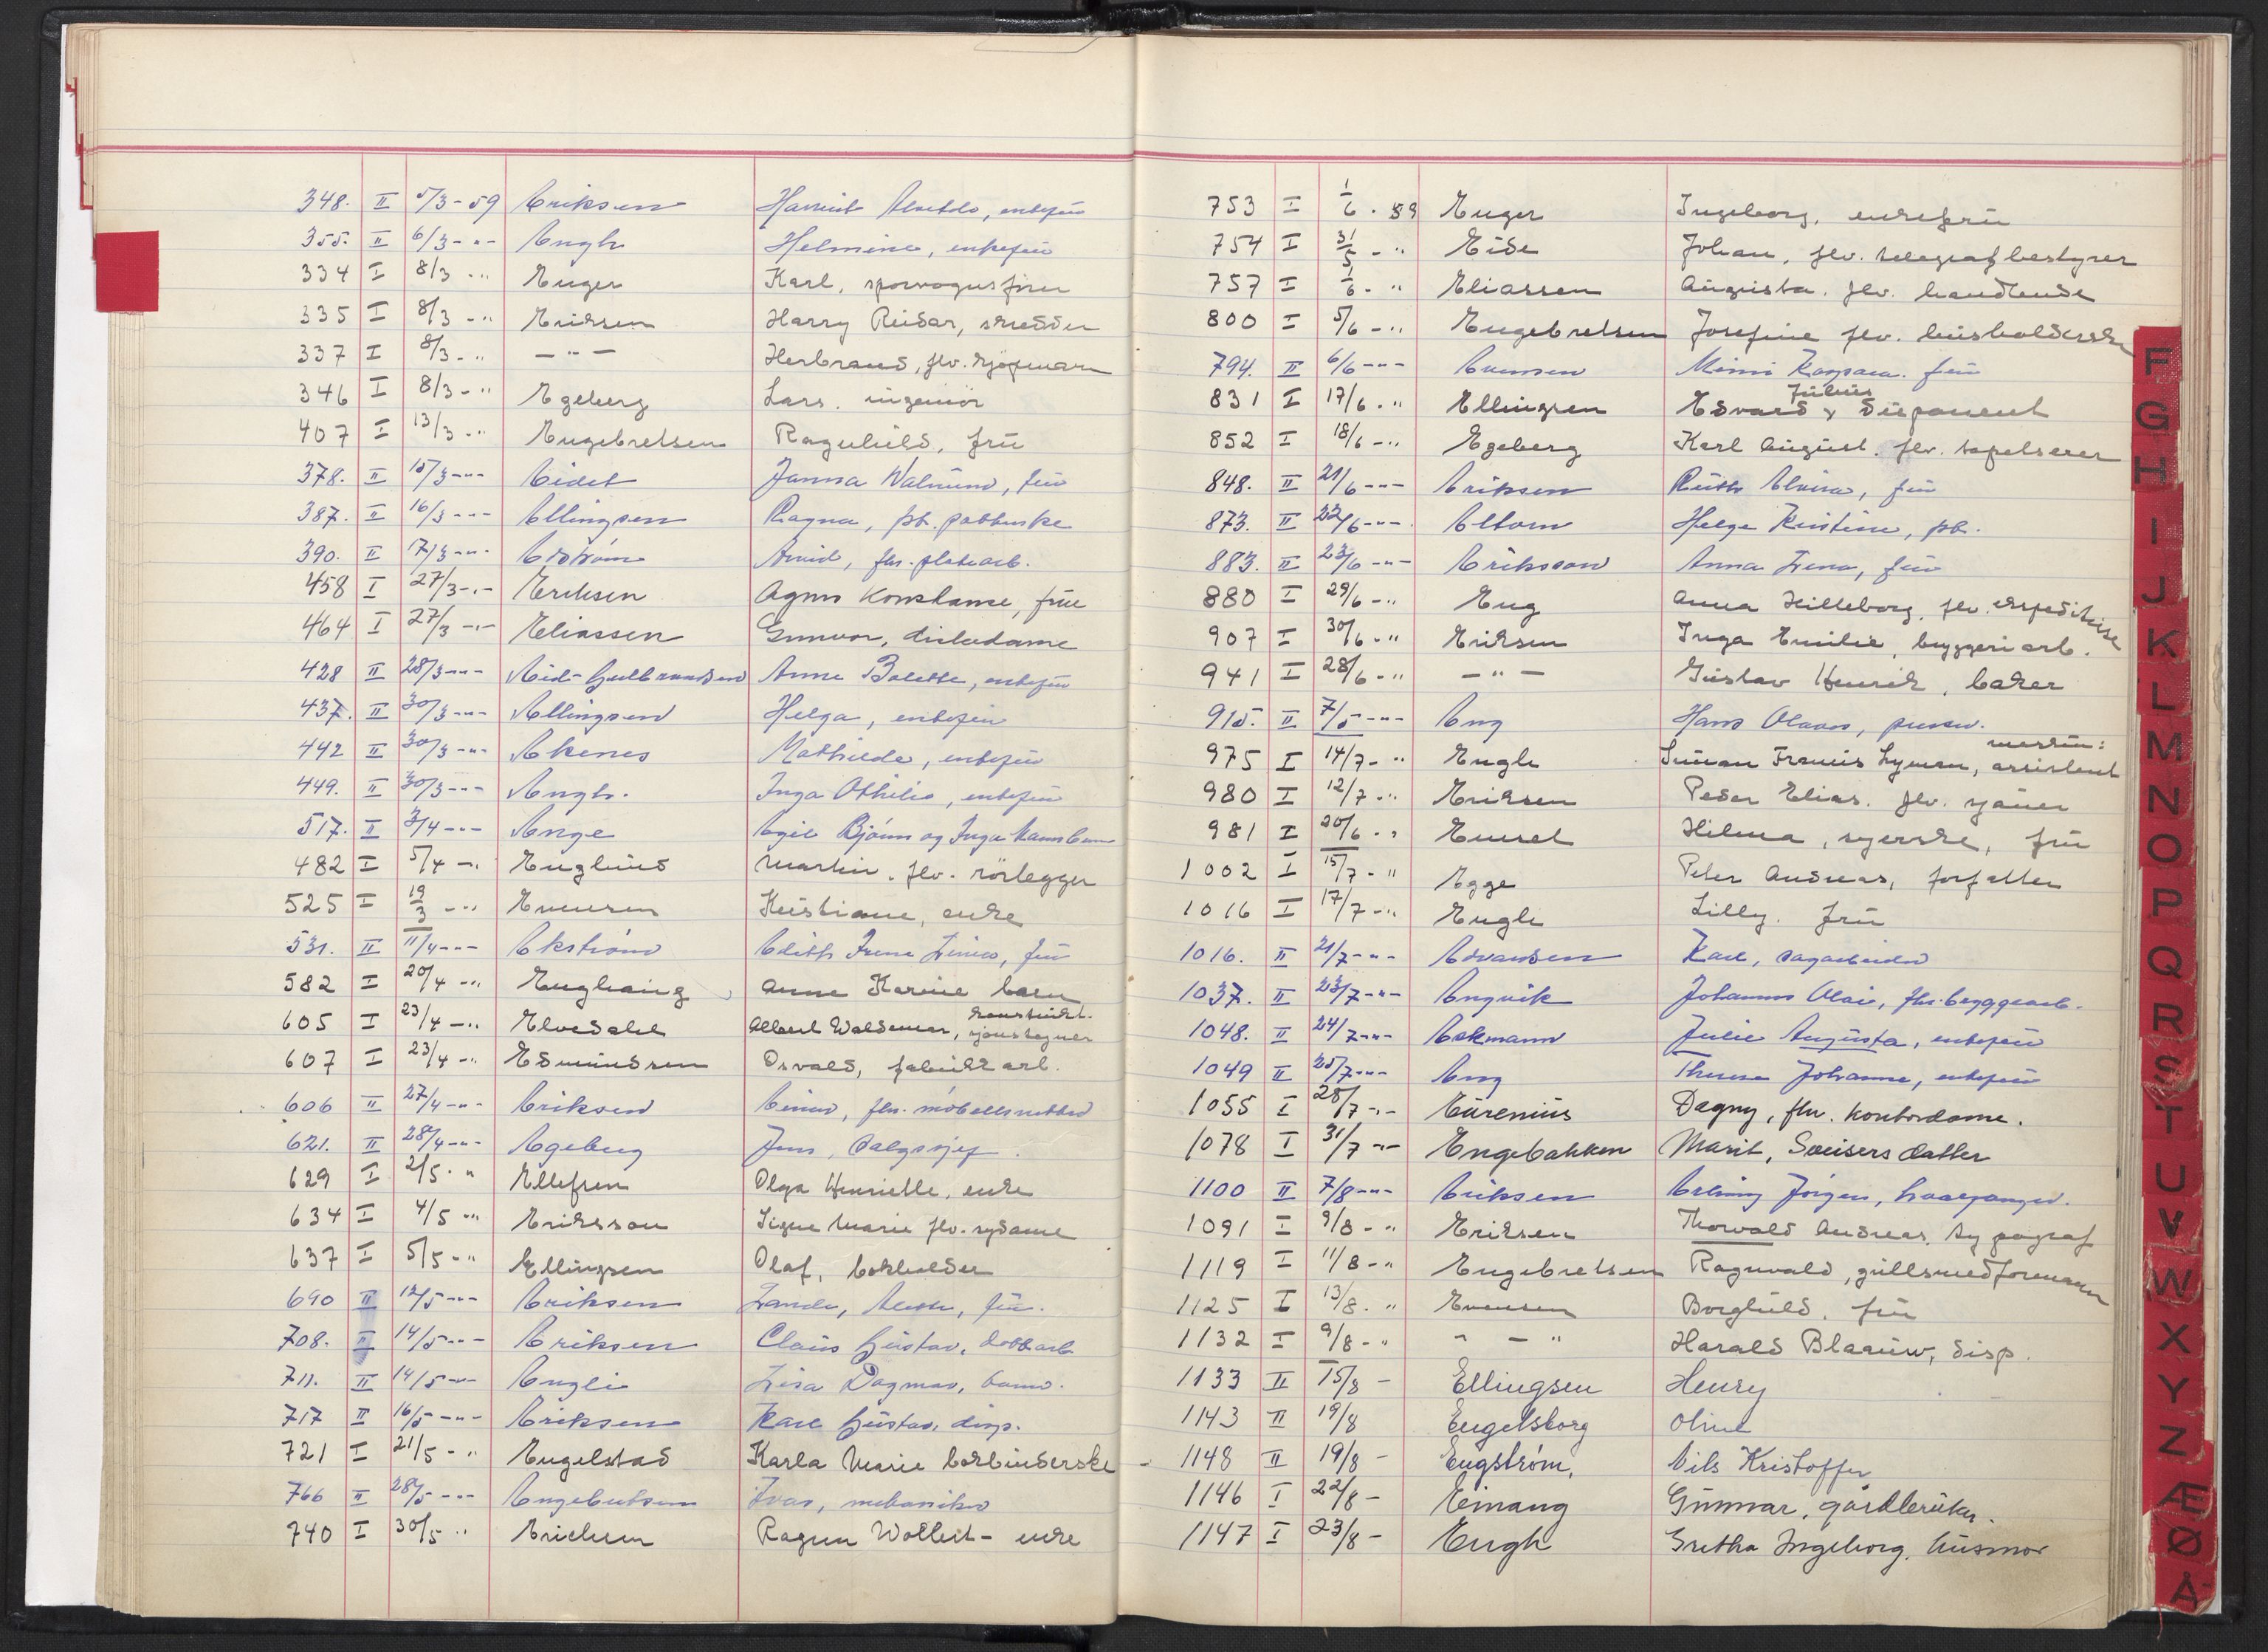 348. II 5/3-59 Eriksen Harriet Alvilda, enkefru
355. II 6/3-"- Engh Helmine, enkefru
334 I 8/3-" Enger Karl, sporvognsfører
335 I 8/3-" Eriksen Harry Reidar, skredder
337 I 8/3-" -"- Herbrand, flv. sjøfmann
346 I 8/3-" Egeberg Lars. ingeniør
407 I 13/3-" Engebretsen Ragnhild, fru
378. II 15/3-"- Eidet Janna Walmine, fru
387. II 16/3-"- Ellingsen Ragna, ps.
390. II 17/3-"- Edström Arvid, fhv. platearb.
458 I 27/3-"- Eriksen Agnes Konstanse, frue
464 I 27/3-"- Eliassen Gunvor, diskedame
428 II 28/3-"- Eid-Gulbrandsen Anne Bolette, enkefru
437. II 30/3-"- Ellingsen Helga, enkefru
442 II 30/3-"- Ekenes Mathilde, enkefru
449. II 30/3-"- Engh. Inga Othilie, enkefru
517. II 3/4-"- Enge Egil Bjørns og Inga
482 I 5/4-" Englund Martin. flv. rörlegger
525 I 19/3-" Evensen Kristiane, enke
531. II 11/4-"- Ekström Edith Irene Linea, fru
582 I 20/4-" Enghaug Anne Karine barn
605 I 23/4-" Elvedahl Albert Waldemar, konstruksjonstegner
607 I 23/4-" Edmundsen Osvald, fabrikkarb.
606 II 27/4-"- Eriksen Einar, fhv. möbelsnekker
621. II 28/4-"- Egeberg Jens, salgssjef
629 I 2/5-" Ellefsen Olga Henriette, enke
634 I 4/5-" Eriksson Signe Marie flv. sydame
637 I 5/5-" Ellingsen Olaf, bokholder
690 II 12/5-"- Eriksen fru.
708. II 14/5-"- Eriksen Claus Gustav,
711. II 14/5-"- Engli Lisa Dagmar,
717 II 16/5-"- Eriksen Karl Gustav, disp.
721 I 21/5-" Engelstad Karla Marie bokbinderske
766 II 28/5-"- Engebretsen Ivar, mekaniker
740 I 30/5 " Erichsen Ragna Wollert - enke
753 I 1/6-59 Enger Ingeborg, enkefru
754 I 31/5-" Eide Johan, flv. telegrafbestyrer
757 I 1/6-" Eliassen Augusta. flv. handlende
800 I 5/6-" Engebretsen Josefine flv. husholderske
794. II 6/6-"- Evensen Mimi Kaspara. fru
831 I 17/6-" Ellingsen Edvard Julius, disponent
852 I 18/6-" Egeberg Karl August. flv. tapetserer
848. II 21/6-"- Eriksen Ruth Elvira, fru
873. II 22/6-"- Eltorn Helga Kristine, ps.
883. II 23/6-"- Eriksson Anna Lena, fru
880 I 29/6-" Eng Anna Hilleborg, flv. ekspeditrise
907 I 30/6-" Eriksen Inga Emilie, bryggeriarb.
941 I 28/6-" -"- Gustav Henrik, baker
915. II 7/5-"- Eng Hans Olavs, pensn.
975 I 14/7-" Engh Simon Francis Lyman, maskinassistent
980 I 12/7-" Eriksen Peder Elias. flv. sjauer
981 I 20/6-" Emsel Hilma, syerske, fru
1002 I 15/7-" Egge Peter Andreas, forfatter
1016 I 17/7-" Engh Lilly. fru
1016. II 21/7-"- Edvardsen Karl, sagarbeider
1037. II 23/7-"- Engvik Johannes Olai, fhv. byggearb.
1048. II 24/7-"- Eckmann Julie Augusta, enkefru
1049 II 25/7-"- Eng Therese Johanne, enkefru
1055 I 28/7-"- Eurenius Dagny, fhv. kontordame.
1078 I 31/7-"- Engebakken Marit, Sveisersdatter
1100 II 7/8-"- Eriksen Erling Jörgen,
1091 I 9/8-" Eriksen Thorvald Andreas, typograf
1119 I 11/8-" Engebretsen Ragnvald, gullsmedformann
1125 I 13/8-" Evensen Borghild. fru
1132 I 9/8-" "-" Harald Blaauw, disp.
1133 II 15/8- Ellingsen Henry
1143 II 19/8 Engelsborg Oline
1148 II 19/8- Engström, Nils Kristoffer
1146 I 22/8- Einang Gunnar, gårdbruker.
1147 I 23/8- Engh Gretha Ingeborg, husmor
F
G
H
I
J
K
L
M
N
O
P
Q
R
S
T
U
V
W
X
Y
Z
Æ
Ø
Å